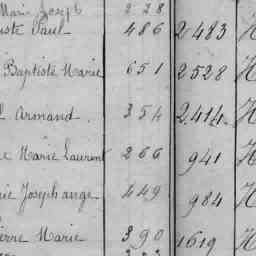 Marie Joseph 228
iste Paul 486 2483 H
Baptiste Marie 651 2528 H
Armand. 354 2414. H
e Marie Laurent 266 941 H
rie Joseph ange 449 984 H
ierre Marie 390 1619 H